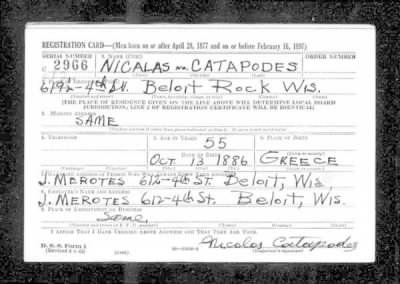 REGISTRATION CARD—(Men born on or after April 28, 1877 and on or before February 16, 1897)
SERIAL NUMBER 1. NAME (Print) ORDER NUMBER
U 2966 NICALAS no. CATAPODES
612-4th St. Beloit Rock Wis.
[THE PLACE OF RESIDENCE GIVEN ON THE LINE ABOVE WILL DETERMINE LOCAL BOARD
JURISDICTION; LINE 2 OF REGISTRATION CERTIFICATE WILL BE IDENTICAL]
3. MAILING ADDRESS
SAME
4. TELEPHONE 5. AGE IN YEARS 6. PLACE OF BIRTH
55
DATE OF BIRTH
OCT 13 1886 GREECE
J. MEROTES 612-4th St. Beloit, Wis
8. EMPLOYER'S NAME AND ADDRESS
J. MEROTES 612-4th St. Beloit, Wis.
9. PLACE OF EMPLOYMENT OR BUSINESS
Same.
I AFFIRM THAT I HAVE VERIFIED ABOVE ANSWERS AND THAT THEY ARE TRUE.
D. S. S. Form 1
(Revised 4-1-42) (over) Nicolas Catapodes